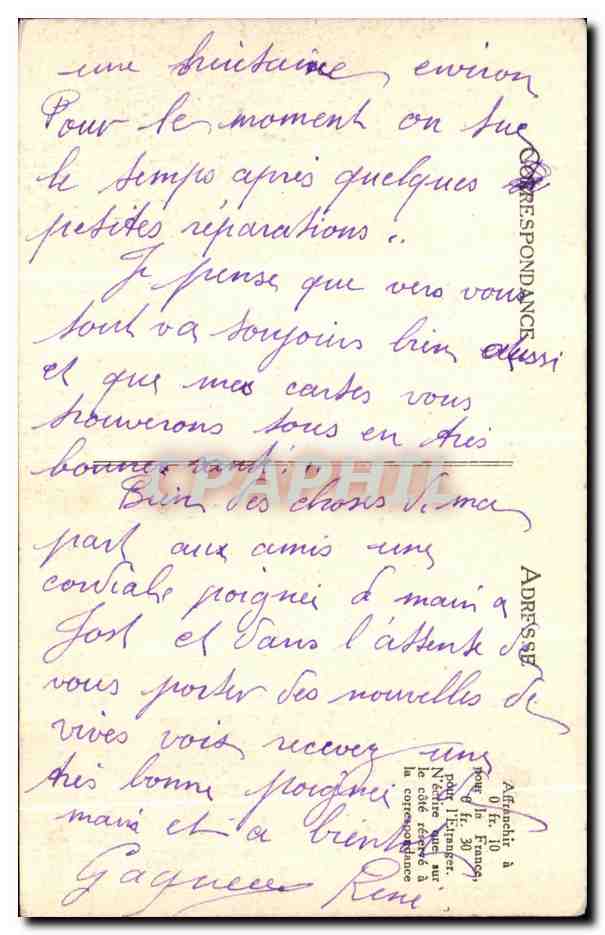 une huitaine environ
Pour le moment on tue
le temps après quelques
petites réparations..
Je pense que vers vous
tout va toujours bien aussi
et que mes cartes vous
trouverons tous en très
bonnes santé!..
Bien des choses de ma
part aux amis une
cordiale poignée de main a
Jost et dans l'attente de
vous porter des nouvelles de
vives voix recevez une
très bonne poignée
main et a bientôt
René
CORRESPONDANCE
ADRESSE
Affranchir à
0 fr. 10
pour la France,
0 fr. 30
pour l'Etranger.
N'écrire que sur
le côté réservé à
la correspondance
CPAPHIL